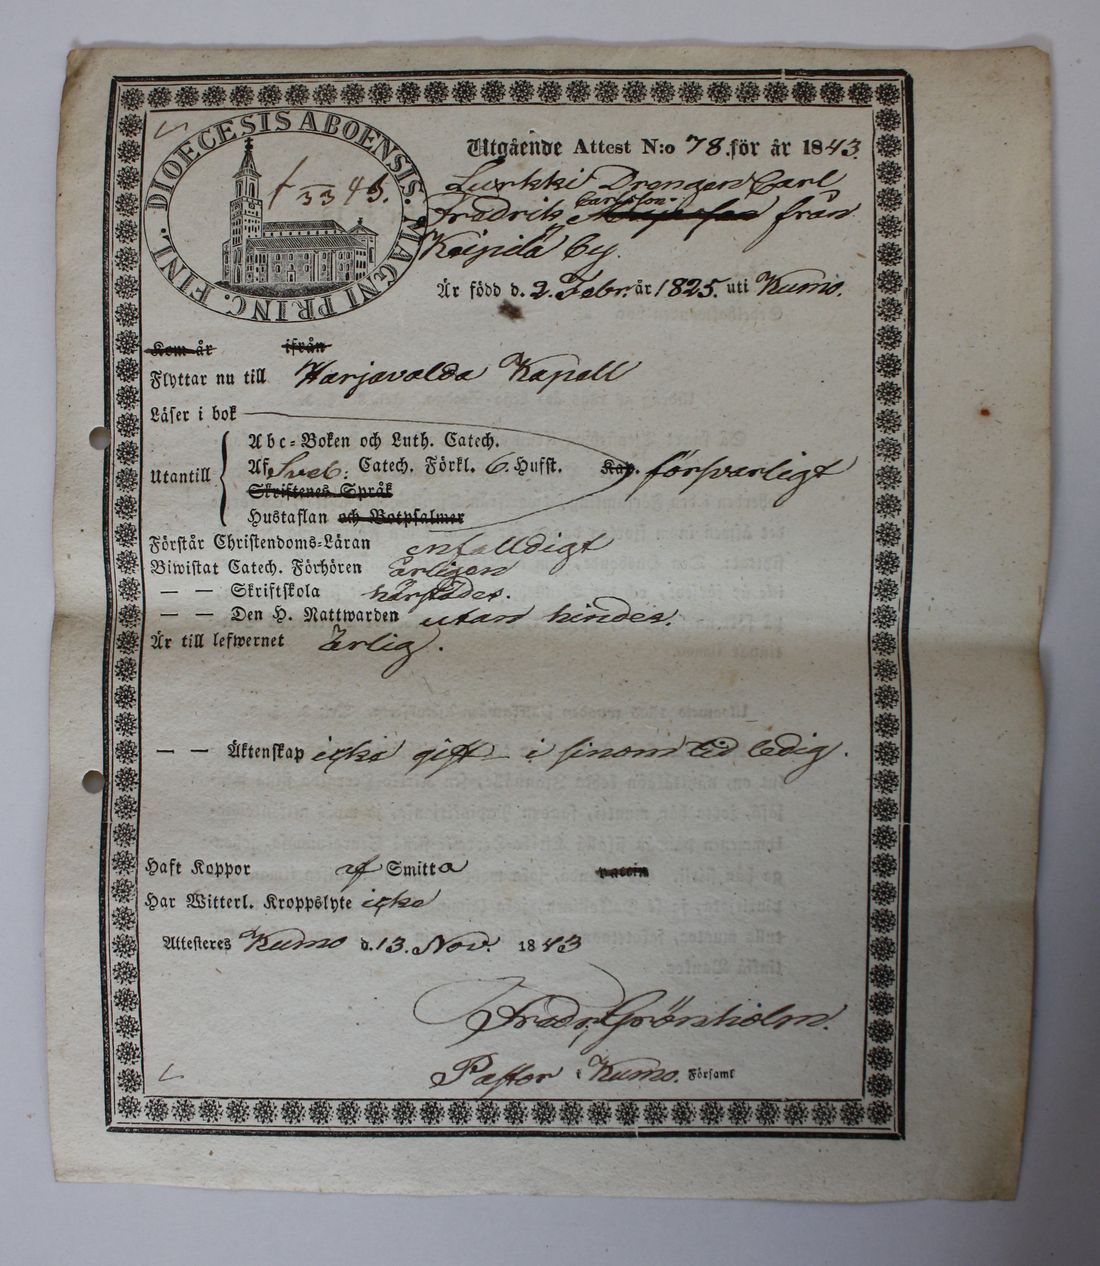 DIOECESIS ABOENSIS. MAGNI PRINC. FINL.
Utgående Attest N:o 78. för år 1843.
Lurkki Drengen Carl
Carlsson
Fredrik från
Keipilä by.
Är född d. 2. Febr. år 1825. uti Kumo.
Kom år ifrån
Flyttar nu till Harjavalda Kapell
Läser i bok
Abc-Boken och Luth. Catech.
Utantill Af Sveb: Catech. Förkl. 6. Hufst. Kap. försvarligt
Skriftenes Språk
Hustaflan och Botpsalmer
Förstår Christendoms-Läran enfalldigt
Biwistat Catech. Förhören årligen
— — Skriftskola härstädes.
— — Den H. Nattwarden utan hinder.
Är till lefwernet Ärlig.
— — Äktenskap icke gift i sinom tid ledig.
Haft Koppor af Smitta vaccin
Har Witterl. Kroppslyte icke
Attesteres Kumo d. 13. Nov. 1843
Fredr. Grönholm.
Pastor i Kumo. Församl